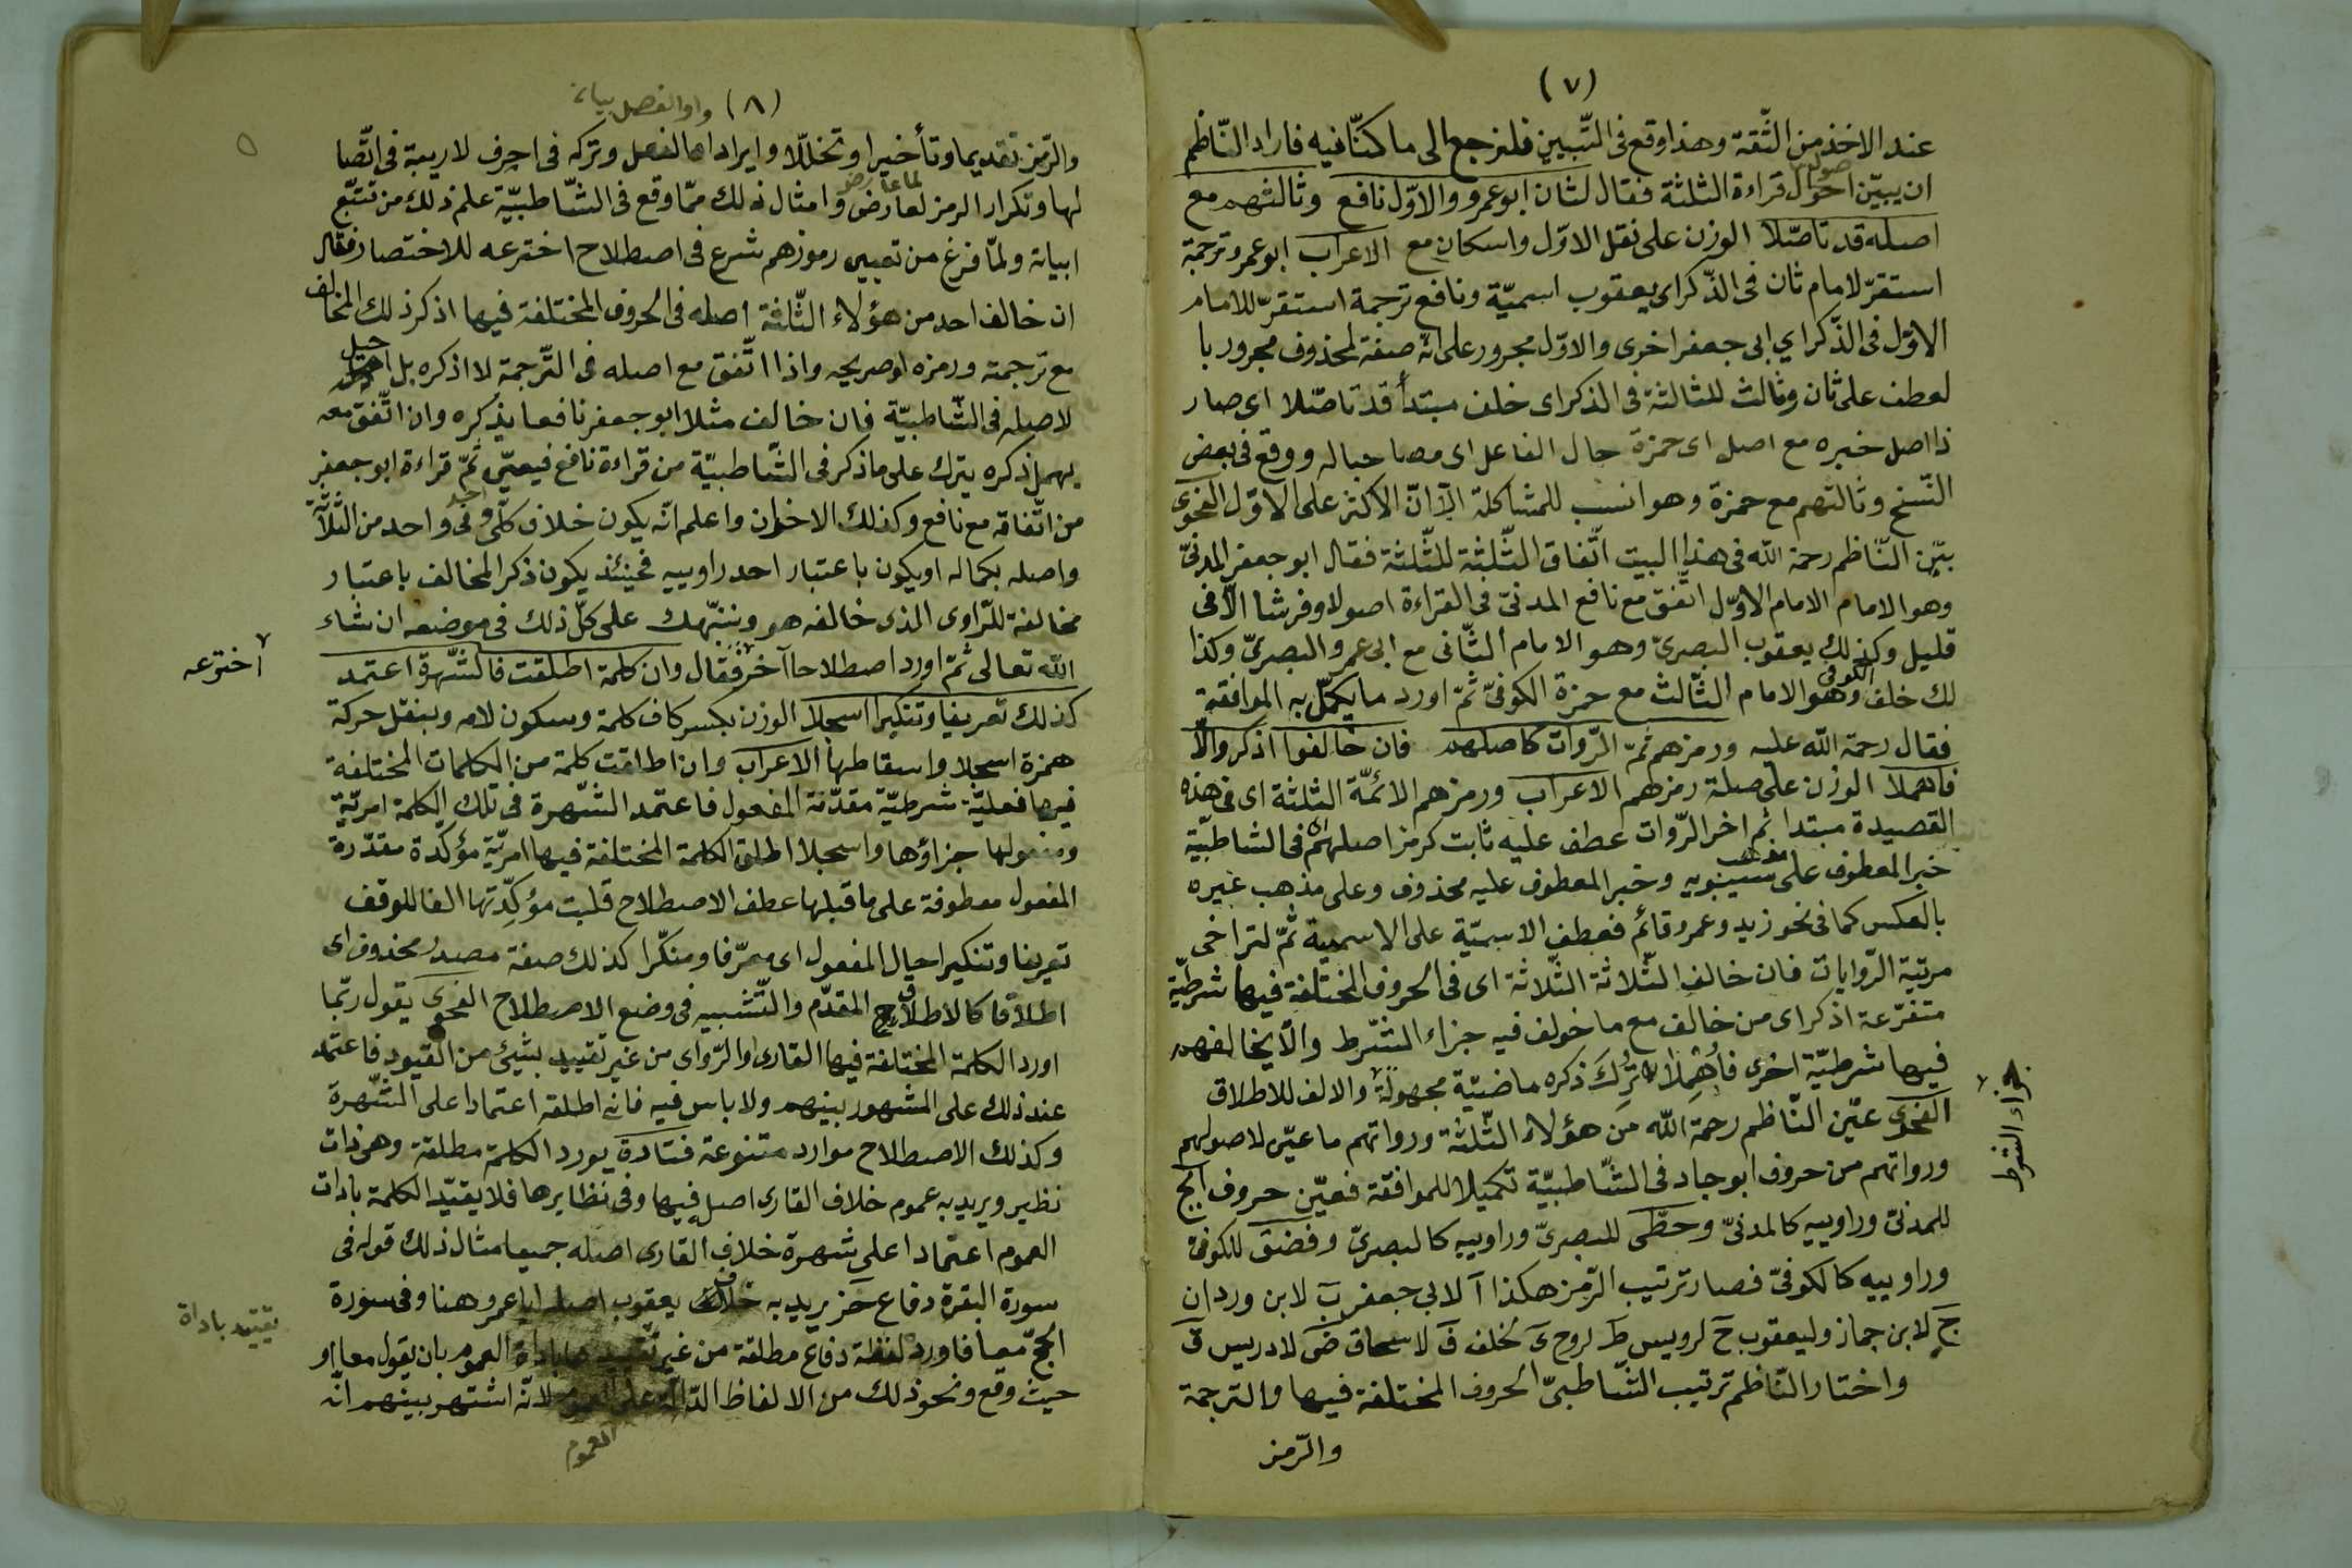 (٧)
عند الاخذ من الثّقة وهذا وقع فى التّبيين فلنرجع الى ما كنّا فيه فاراد النّاظم
ان يبيّن احوال قراءة الثلثة فقال لثان ابو عمرو والاوّل نافع وثالثهم مع
اصله قد تاصّلا الوزن على نقل الاوّل واسكان مع الاعراب ابو عمرو ترجمة
استقرّ لامام ثان فى الذّكر اى يعقوب اسميّة ونافع ترجمة استقرّ للامام
الاوّل فى الذّكر اي ابى جعفر اخرى والاوّل مجرور على انّه صفة لمحذوف مجرور با
لعطف على ثان وثالث للثالثة فى الذكر اى خلف مبتدأ قد تاصّلا اى صار
ذا اصل خبره مع اصل اى حمزة حال الفاعل اى مصاحبا له ووقع فى بعض
النّسخ وثالثهم مع حمزة وهو انسب للمشاكلة الّا انّ الاكثر على الاوّل الفحوى
بيّن النّاظم رحمة الله فى هذا البيت اتّفاق الثّلثة للثّلثة فقال ابو جعفر المدنىّ
وهو الامام الامام الاوّل اتّفق مع نافع المدنىّ فى القراءة اصولا وفرشا الّا فى
قليل وكذلك يعقوب البصرىّ وهو الامام الثّانى مع ابى عمرو البصرىّ وكذا
لك خلف الكوفى وهو الامام الثّالث مع حمزة الكوفىّ ثمّ اورد ما يكمّل به الموافقة
فقال رحمة الله عليه ورمزهم ثمّ الرّوات كاصلهم فان خالفوا اذكر والّا
فاهملا الوزن على صلة رمزهم الاعراب ورمزهم الائمّة الثلثة اى فى هذه
القصيدة مبتدا ثم اخر الرّوات عطف عليه ثابت كرمز اصلهم فى الشاطبيّة
خبر المعطوف على مذهب سيبويه وخبر المعطوف عليه محذوف وعلى مذهب غيره
بالعكس كما فى نحو زيد وعمرو قائم فعطف الاسميّة على الاسمية ثمّ لتراخى
مرتبة الرّوايات فان خالف الثّلاثة الثّلاثة اى فى الحروف المختلفة فيها شرطيّة
متفرّعة اذكر اى من خالف مع ما خولف فيه جزاء الشّرط والّا يخالفهم
فيها شرطيّة اخرى فأُهْمِلَا تُرِكَ ذكره ماضيّة مجهولة والالف للاطلاق
جزاء الشرط
الفحوى عيّن النّاظم رحمة الله من هؤلاء الثّلثة ورواتهم ما عيّن لاصولهم
ورواتهم من حروف ابو جاد فى الشّاطبيّة تكميلا للموافقة فعيّن حروف ابج
للمدنىّ وراوييه كالمدنىّ وحطّى للبصرىّ وراوييه كالبصرىّ وفضق للكوفىّ
وراوييه كالكوفىّ فصار ترتيب الرّمز هكذا آ لابي جعفر بَ لابن وردان
جَ لابن جماز وليعقوب حَ لرويس طَ لروح ىَ لخلف فَ لاسحاق ضَ لادريس قَ
واختار النّاظم ترتيب الشّاطبىّ الحروف المختلفة فيها والترجمة
والرّمز
(٨) واو الفصل بيانه
والرّمز تقديما وتأخيرا وتخلّلا وايراد الفصل وتركه فى احرف لا ريبة فى اتّصا
لها وتكرار الرمز لعارض وامثال ذلك ممّا وقع فى الشّاطبيّة علم ذلك من تتبّع
ابياته ولمّا فرغ من تعيين رموزهم شرع فى اصطلاح اخترعه للاختصار فقال
ان خالف احد من هؤلاء الثّلثة اصله فى الحروف المختلفة فيها اذكر ذلك المخالف
مع ترجمته ورمزه او صريحه واذا اتّفق مع اصله فى التّرجمة لا اذكره بل
لاصله فى الشّاطبيّة فان خالف مثلا ابو جعفر نافعا يذكره وان اتّفق معه
يهمل ذكره يترك على ما ذكر فى الشّاطبيّة من قراءة نافع فيعيّن ثمّ قراءة ابو جعفر
من اتّفاقه مع نافع وكذلك الاخوان واعلم انّه يكون خلاف كلّ واحد من الثّلاثة
واصله بكماله او يكون باعتبار احد راوييه فحينئذ يكون ذكر المخالف باعتبار
مخالفة للرّاوى الذى خالفه هو وننبّهك على كلّ ذلك فى موضعه ان شاء
الله تعالى ثمّ اورد اصطلاحا آخر فقال وان كلمة اطلقت فالشّهرة اعتمد
اخترعه
كذلك تعريفا وتنكيرا اسجلا الوزن بكسر كاف كلمة وسكون لامه وبنقل حركة
همزة اسجلا واسقاطها الاعراب وان اطلقت كلمة من الكلمات المختلفة
فيها فعليّة شرطيّة مقدّمة المفعول فاعتمد الشّهرة فى تلك الكلمة امريّة
ومفعولها جزاؤها واسجلا اطلق الكلمة المختلفة فيها امريّة مؤكّدة مقدّرة
المفعول معطوفة على ما قبلها عطف الاصطلاح قلبت مؤكّدتها الفا للوقف
تعريفا وتنكيرا حال المفعول اى معرّفا ومنكّرا كذلك صفة مصدر محذوف اى
اطلاقا كالاطلاق المقدّم والتّشبيه فى وضع الاصطلاح الفحوى يقول ربّما
اورد الكلمة المختلفة فيها القارى او الرّواى من غير تقييد بشيئ من القيود فاعتمد
عند ذلك على المشهور بينهم ولا باس فيه فانه اطلقه اعتمادا على الشّهرة
وكذلك الاصطلاح موارد متنوعة فتادة يورد الكلمة مطلقة وهى ذات
نظير ويريد به عموم خلاف القارى اصله فيها وفى نظايرها فلا يقيّد الكلمة بادات
العموم اعتمادا على شهرة خلاف القارى اصله جميعا مثال ذلك قوله فى
سورة البقرة دفاع حز يريد به خلاف يعقوب اصله ابا عمرو هنا وفى سورة
الحجّ معا فاورد لفظة دفاع مطلقة من غير تقييدها باداة العموم بان يقول معا او
تقييد باداة
حيث وقع ونحو ذلك من الالفاظ الدّالّة على العموم لانّه اشتهر بينهم انّه
العموم